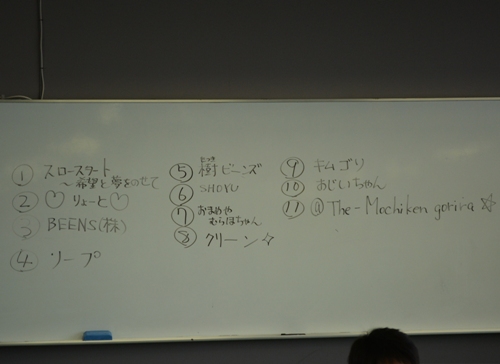 ① スロースタート
～希望と夢をのせて
② ♡リょーと♡
③ BEENS(株)
④ ソープ
⑤ 樹ビーンズ
⑥ SHOYU
⑦ おまめや
むらほちゃん
⑧ クリーン☆
⑨ キムゴリ
⑩ おじいちゃん
⑪ @The-Mochiken gorira ☆